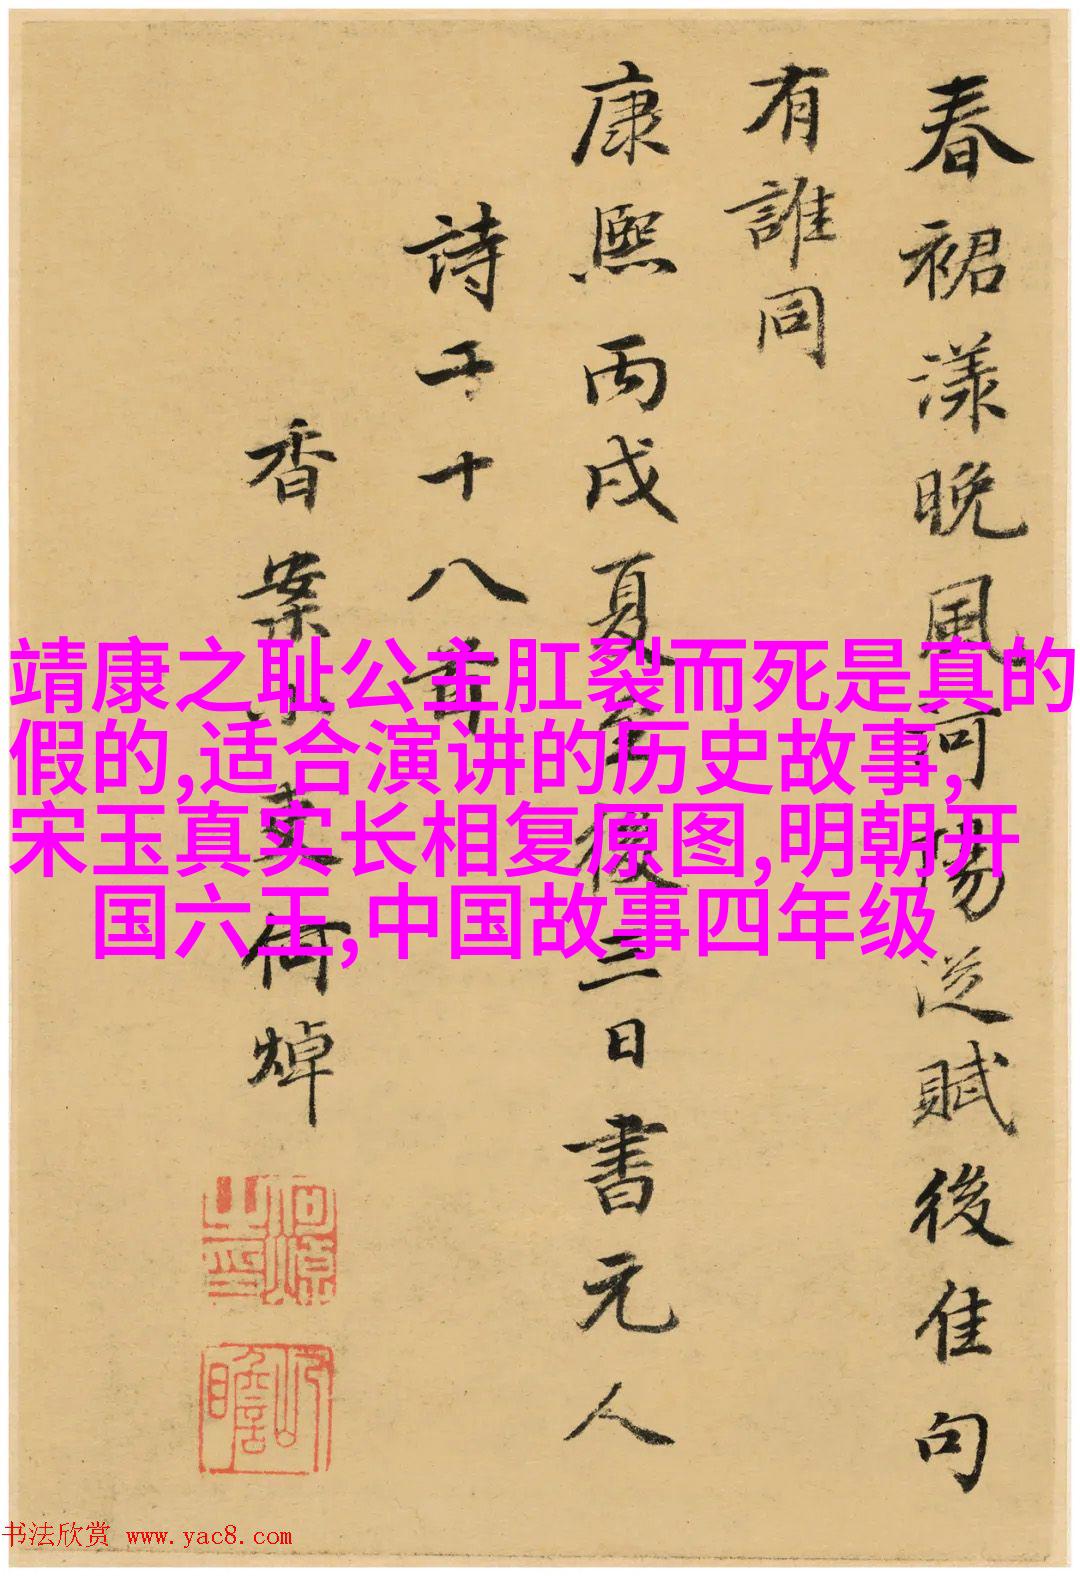 春裙漾晚風河陽從賦後佳句
有誰同
康熙丙戌夏至後三日書元人
詩于十八首
香案小吏何焯
何焯之印
屺瞻
靖康之耻公主肛裂而死是真的
假的,适合演讲的历史故事,
宋玉真实长相复原图,明朝开
国六王,中国故事四年级
书法欣赏 www.yac8.com